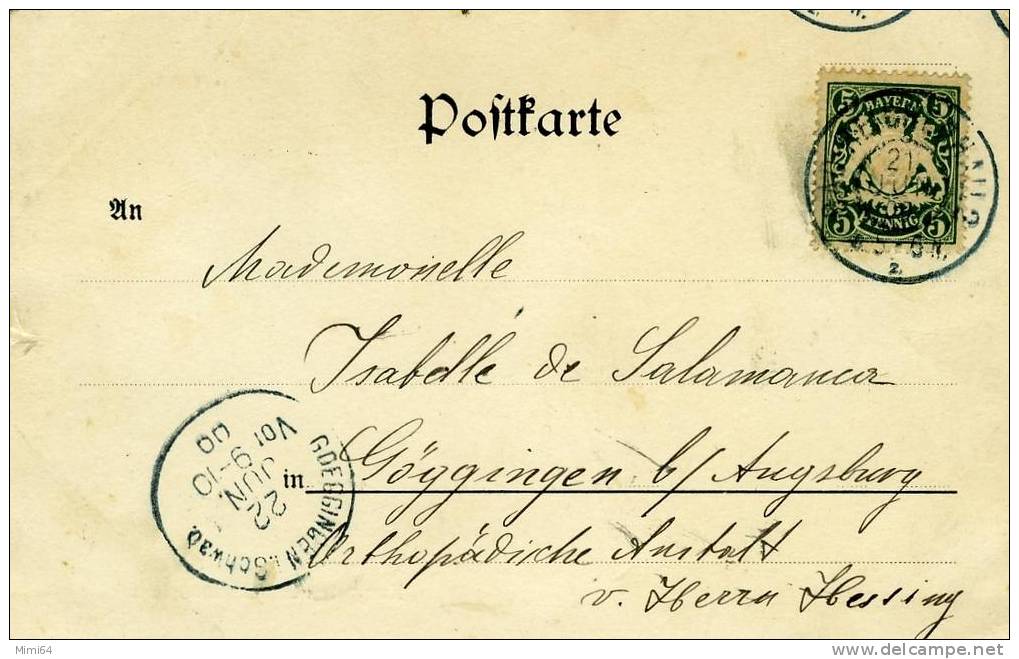 Postkarte
5 BAYERN 5
21
JUN
5 PFENNIG 5
2.
An
Mademoiselle
Isabelle de Salamanca
in Göggingen b/ Augsburg
Orthopädische Anstalt
v. Herrn Hessing
GOEGGINGEN i. Schwab.
22
JUN.
9-10
Vor
00
Mimi64
www.delcampe.net